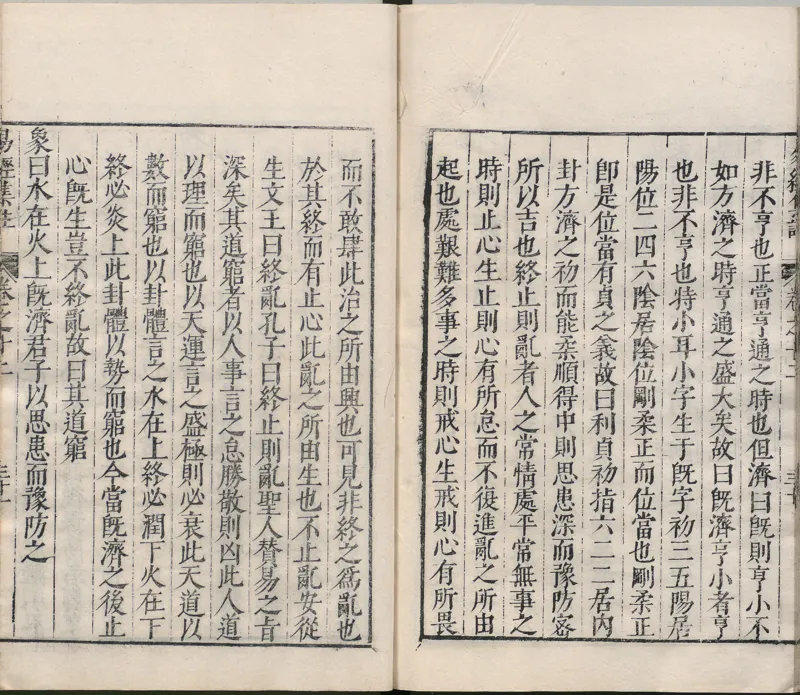 非不亨也正當亨通之時也但濟曰旣則亨小不
如方濟之時亨通之盛大矣故曰旣濟亨小者亨
也非不亨也特小耳小字生于旣字初三五陽居
陽位二四六陰居陰位剛柔正而位當也剛柔正
卽是位當有貞之義故曰利貞初指六二二居內
卦方濟之初而能柔順得中則思患深而豫防密
所以吉也終止則亂者人之常情處平常無事之
時則止心生止則心有所怠而不復進亂之所由
起也處艱難多事之時則戒心生戒則心有所畏
而不敢肆此治之所由興也可見非終之爲亂也
於其終而有止心此亂之所由生也不止亂安從
生文王曰終亂孔子曰終止則亂聖人贊易之旨
深矣其道窮者以人事言之怠勝敬則凶此人道
以理而窮也以天運言之盛極則必衰此天道以
數而窮也以卦體言之水在上終必潤下火在下
終必炎上此卦體以勢而窮也今當旣濟之後止
心旣生豈不終亂故曰其道窮
象曰水在火上旣濟君子以思患而豫防之
易經集註
卷之十二